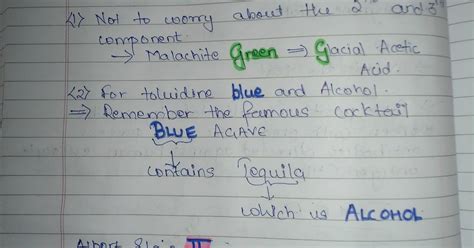 <1> Not to worry about the 2nd and 3rd
component
→ Malachite Green ⇒ Glacial Acetic
Acid.
<2> For toluidine blue and Alcohol.
⇒ Remember the famous cocktail
BLUE AGAVE
contains Tequila
which is ALCOHOL
Albert Stain II